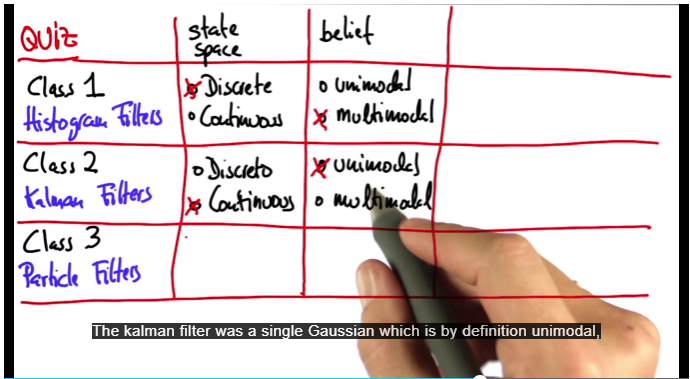 QUIZ
state
space
belief
Class 1
Histogram Filters
Discrete
Continuous
unimodal
multimodal
Class 2
Kalman Filters
Discrete
Continuous
unimodal
multimodal
Class 3
Particle Filters
The kalman filter was a single Gaussian which is by definition unimodal,